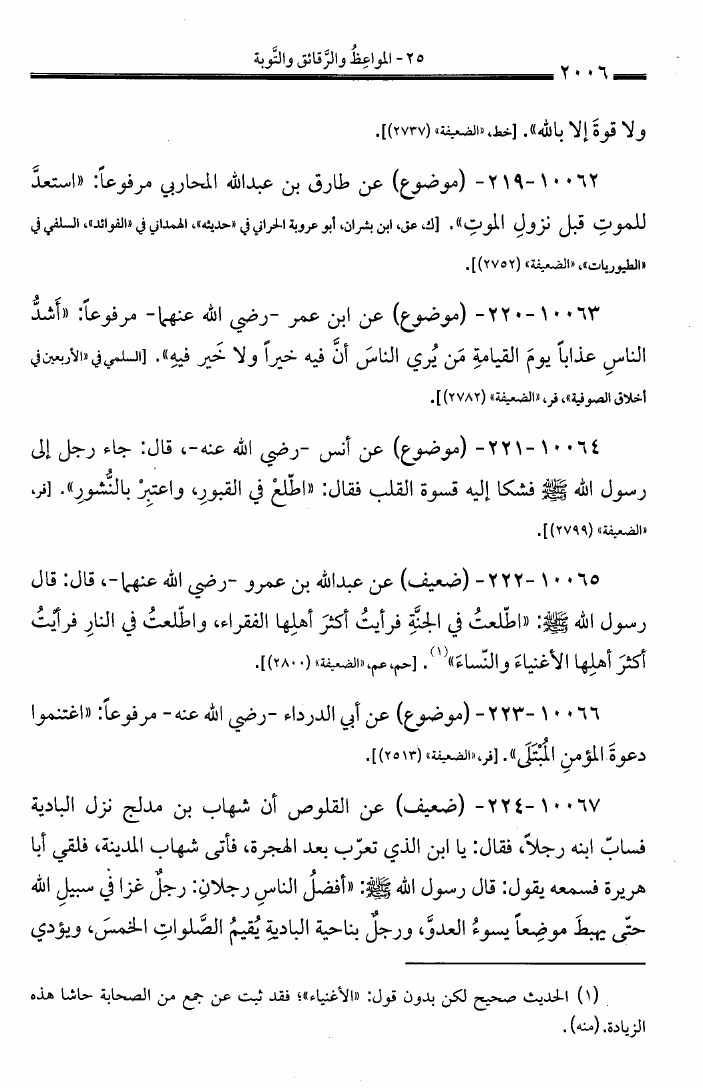 ٢٥- المواعِظُ والرَّقائق والتَّوبة
٢٠٠٦
ولا قوةَ إلا بالله». [خط، «الضعيفة» (٢٧٣٧)].
١٠٠٦٢-٢١٩- (موضوع) عن طارق بن عبدالله المحاربي مرفوعاً: «استعدَّ
للموتِ قبل نزولِ الموتِ». [ك، عق، ابن بشران، أبو عروبة الحراني في «حديثه»، الهمداني في «الفوائد»، السلفي في
«الطيوريات»، «الضعيفة» (٢٧٥٢)].
١٠٠٦٣-٢٢٠- (موضوع) عن ابن عمر -رضي الله عنهما- مرفوعاً: «أَشدُّ
الناسِ عذاباً يومَ القيامةِ مَن يُري الناسَ أنَّ فيه خيراً ولا خَير فيهِ». [السلمي في «الأربعين في
أخلاق الصوفية»، فر، «الضعيفة» (٢٧٨٢)].
١٠٠٦٤-٢٢١- (موضوع) عن أنس -رضي الله عنه-، قال: جاء رجل إلى
رسول الله ﷺ فشكا إليه قسوة القلب فقال: «اطّلعْ في القبورِ، واعتبِرْ بالنُّشورِ». [فر،
«الضعيفة» (٢٧٩٩)].
١٠٠٦٥-٢٢٢- (ضعيف) عن عبدالله بن عمرو -رضي الله عنهما-، قال: قال
رسول الله ﷺ: «اطّلعتُ في الجنَّةِ فرأيتُ أكثرَ أهلِها الفقراء، واطّلعتُ في النارِ فرأيْتُ
أكثرَ أهلِها الأغنياءَ والنّساءَ»(١). [حم، عم، «الضعيفة» (٢٨٠٠)].
١٠٠٦٦-٢٢٣- (موضوع) عن أبي الدرداء -رضي الله عنه- مرفوعاً: «اغتنموا
دعوةَ المؤمنِ المُبْتَلَى». [فر، «الضعيفة» (٢٥١٣)].
١٠٠٦٧-٢٢٤- (ضعيف) عن القلوص أن شهاب بن مدلج نزل البادية
فسابّ ابنه رجلاً، فقال: يا ابن الذي تعرّب بعد الهجرة، فأتى شهاب المدينة، فلقي أبا
هريرة فسمعه يقول: قال رسول الله ﷺ: «أفضلُ الناسِ رجلانِ: رجلٌ غزا في سبيلِ الله
حتّى يهبطَ موضِعاً يسوءُ العدوَّ، ورجلٌ بناحية الباديةِ يُقيمُ الصَّلواتِ الخمسَ، ويؤدي
(١) الحديث صحيح لكن بدون قول: «الأغنياء»؛ فقد ثبت عن جمع من الصحابة حاشا هذه
الزيادة. (منه).